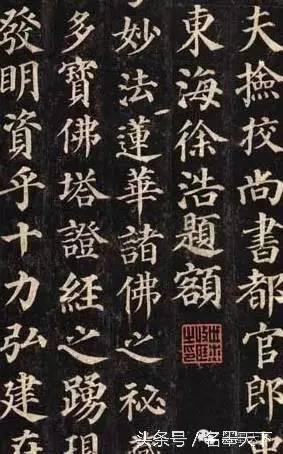 夫撿挍尚書都官郎
東海徐浩題額
妙法蓮華諸佛之祕
多寶佛塔證經之踴現
發明資乎十力弘建在
头条号/名墨天下